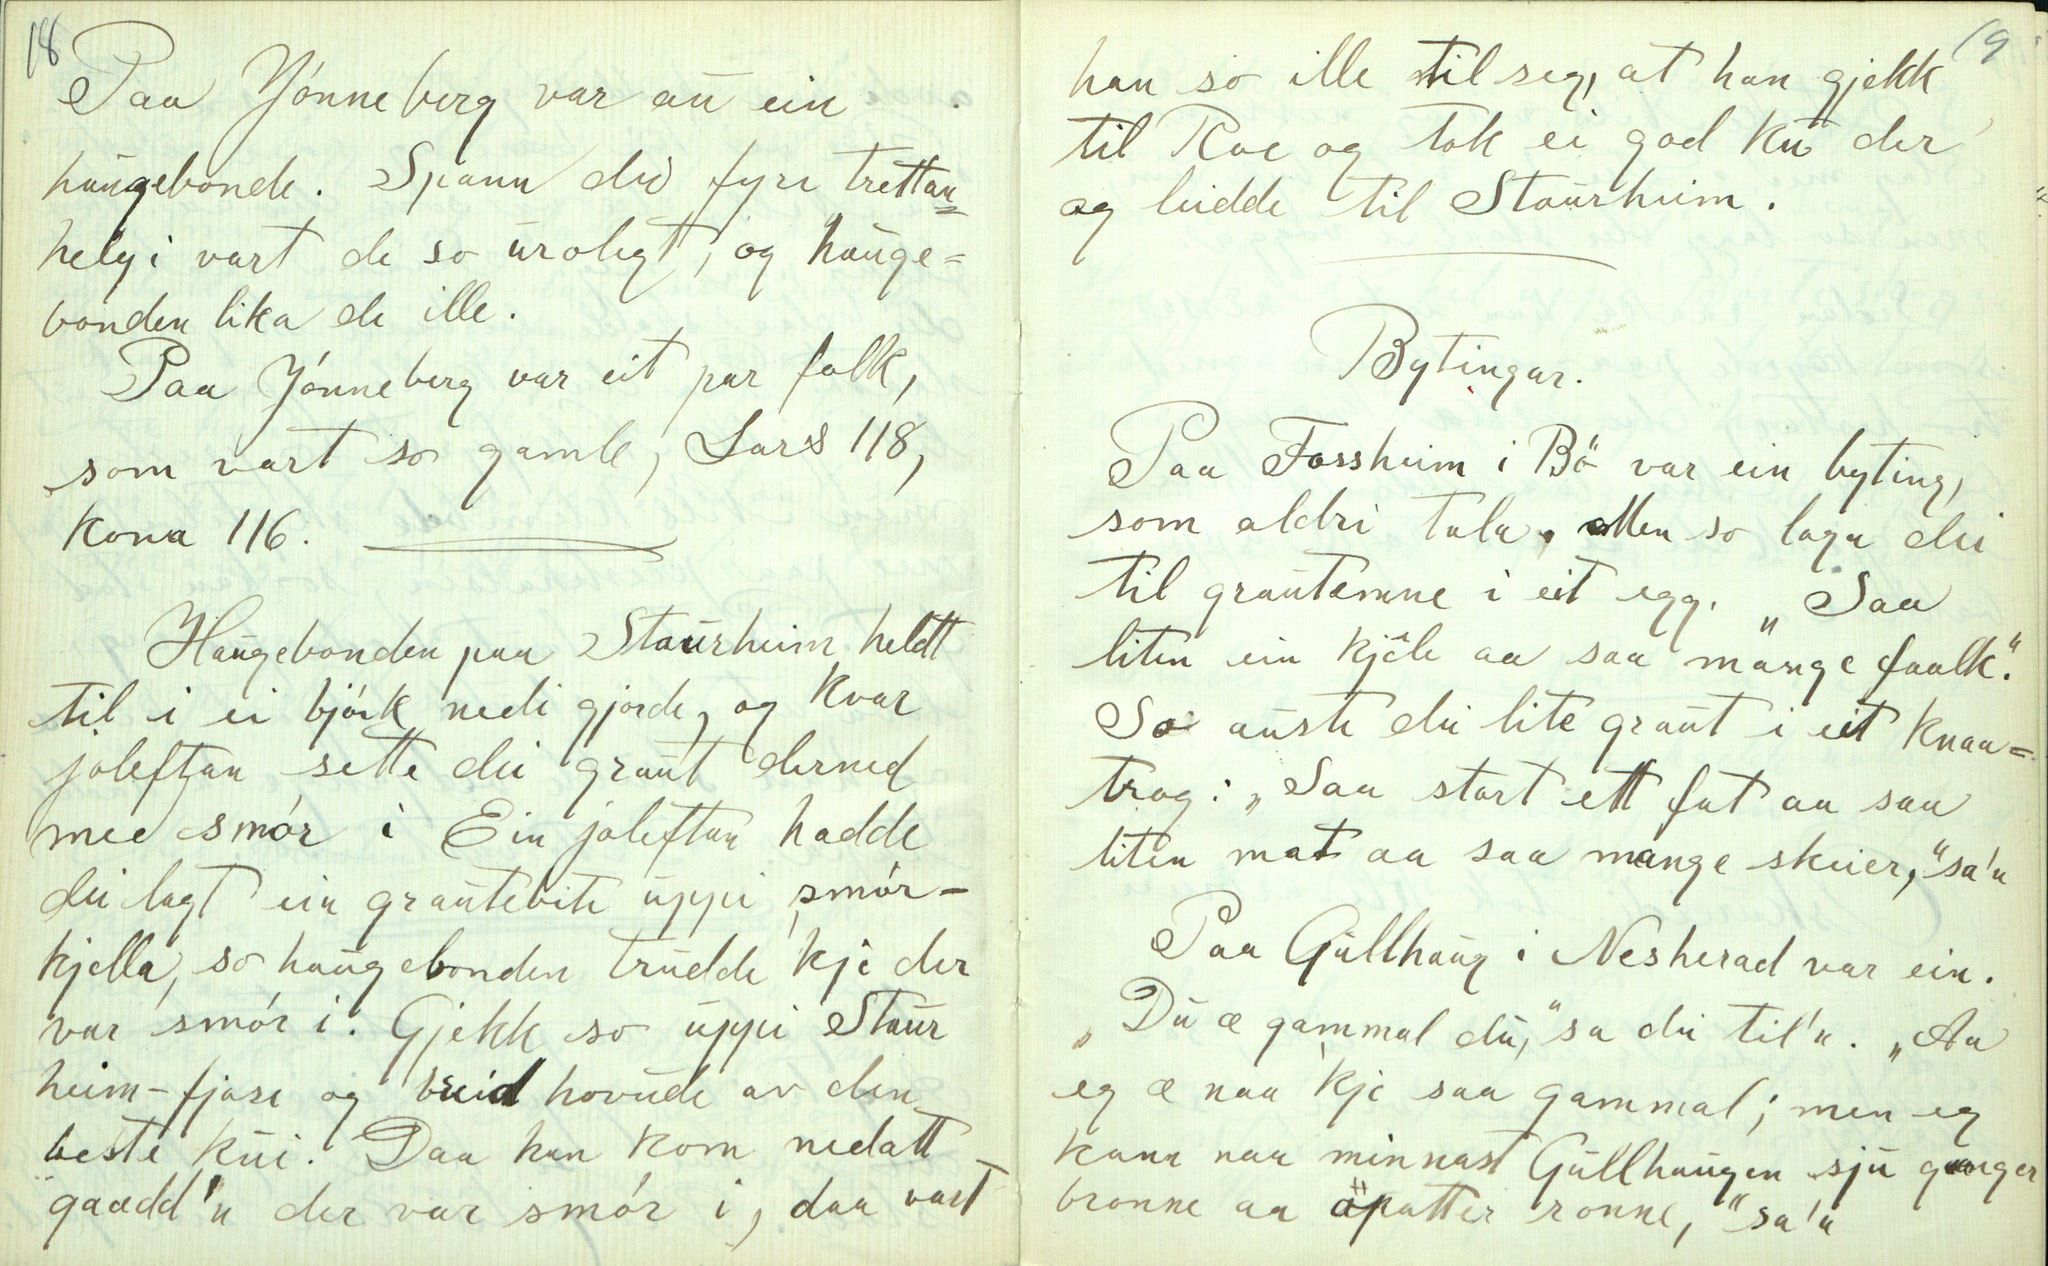 18
Paa Jónneberg var aú ein
haúgebonde. Spann dei fyri trettan=
helgi vart de so úroligt, og haúge=
bonden lika de ille.
Paa Jónneberg var eit par folk,
som vart so gamle, Lars 118,
Kona 116.
Haúgebonden paa Staúrheim heldt
til i ei bjórk nedi gjorde, og kvar
joleftan sette dei graút derned
med smór i Ein joleftan hadde
dei lagt ein graútebite úppi smór-
kjella, so haúgebonden trúdde kje der
var smór i. Gjekk so úppi Staúr
heim-fjose og vreid hovúde av den
beste kúi. Daa han kom nedatt
gaadd'n der var smór i, daa vart
19
han so ille til seg, at han gjekk
til Roe og tok ei god kú der
og leidde til Staúrheim.
Bytingar.
Paa Fossheim i Bö var ein byting,
som aldri tala. Men so laga dei
til graútemne i eit egg. „Saa
liten ein kjêle aa saa mange faalk."
So aúste dei lite graút i eit knaa=
trog: „Saa stort ett fat aa saa
liten mat aa saa mange skeier," sa'n
Paa Gúllhaúg i Nesherad var ein.
„Dú æ gammal dú," sa dei til'n. „Aa
eg æ naa kje saa gammal; men eg
kann naa minnast Gúllhaúgen sjú gonger
bronne aa öpatter ronne," sa'n